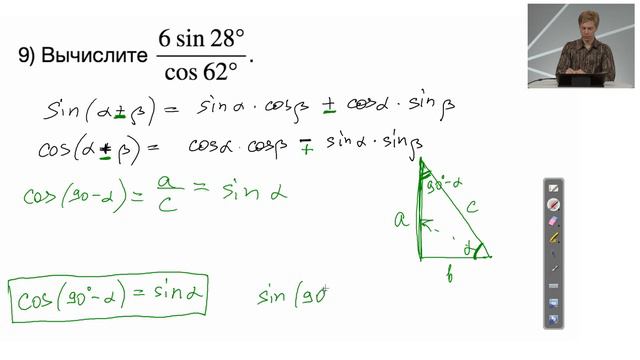 9) Вычислите 6 sin 28° / cos 62° .
sin(α ± β) = sinα · cosβ ± cosα · sinβ
cos(α ± β) = cosα · cosβ ∓ sinα · sinβ
cos(90-α) = a/c = sin α
90°-α
a
c
α
b
cos(90°-α) = sinα
sin(90°